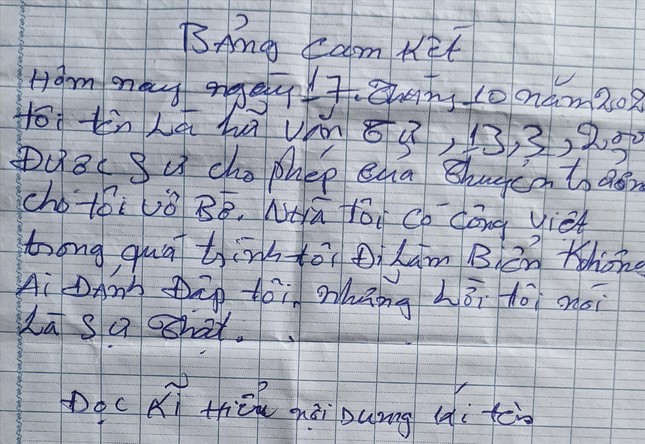 Bảng cam Kết
Hôm nay ngày 17. tháng 10 năm 202
tôi tên Là hà văn , 13, 3, 200
Được sự cho phép của thuyền
cho tôi vô Bờ. Nhà Tôi có công việt
trong quá trình tôi Đi Làm Biển Không
Ai Đánh Đập tôi. những Lời tôi nói
Là sự thật.
Đọc kĩ Hiểu nội Dung kí tên